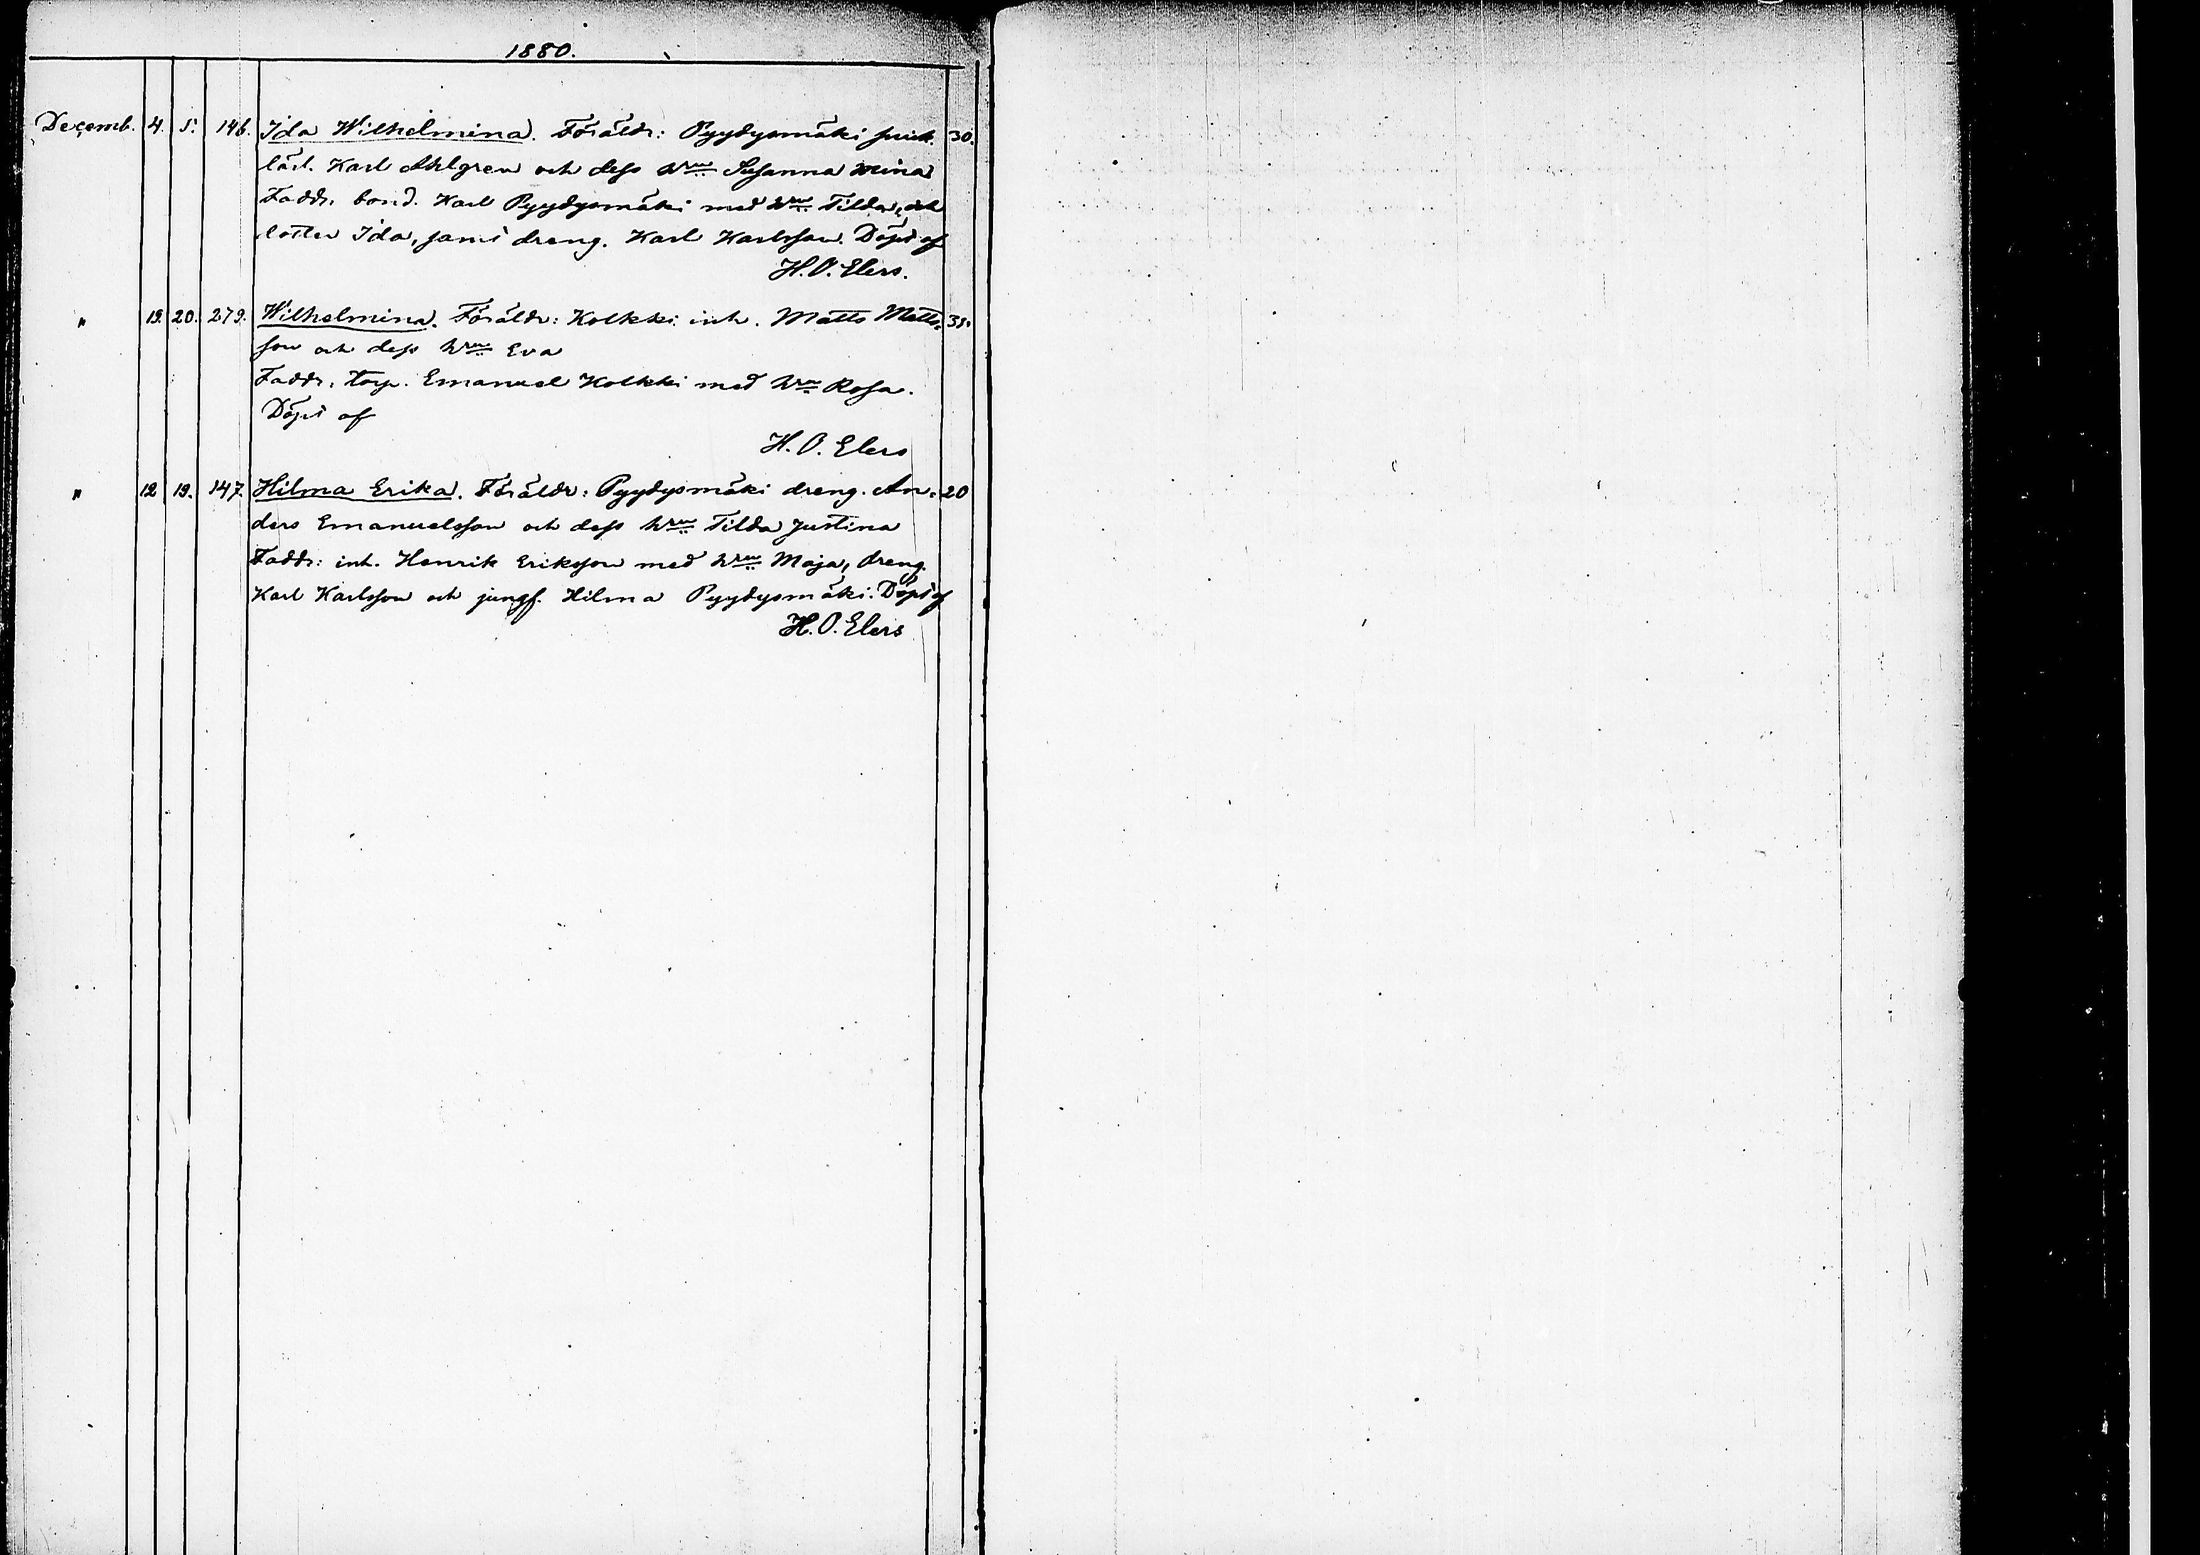 1880.
Decemb. 4. 5. 146. Ida Wilhelmina. Föräldr: Pyydysmäki 30.
Karl Ahlgren och dess hru Susanna Mina
Faddr. bond. Karl Pyydysmäki med hru Tilda, och
Ida, samt dreng. Karl Karlsson. Döpt af
H. O. Elers.
" 19. 20. 279. Wilhelmina. Föräldr: Kolkki inh. Matts Matts- 35.
son och dess hru Eva
Faddr. torp. Emanuel Kolkki med hru Rosa.
Döpt af
H. O. Elers
" 12 19. 147. Hilma Erika. Föräldr: Pyydysmäki dreng. An- 20
ders Emanuelsson och dess hru Tilda Justina
Faddr: inh. Henrik Eriksson med hru Maja, dreng.
Karl Karlsson och jungf. Hilma Pyydysmäki. Döpt af
H. O. Elers